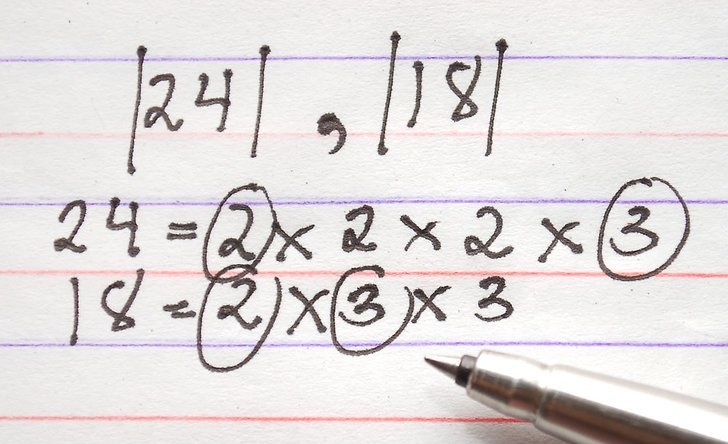 |24| , |18|
24 = 2 × 2 × 2 × 3
18 = 2 × 3 × 3